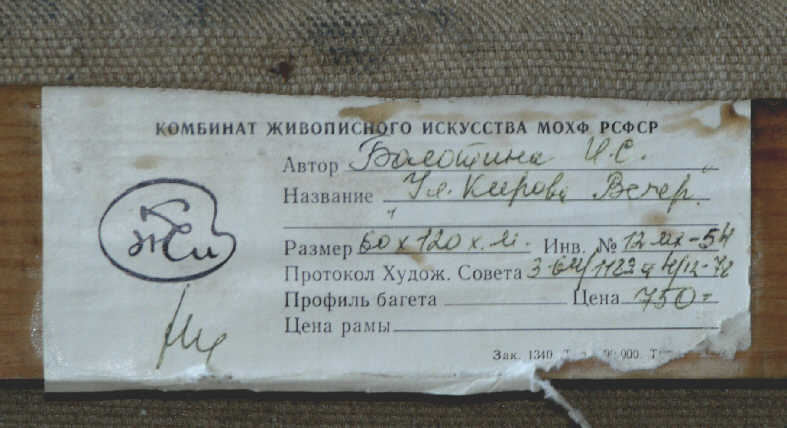 КОМБИНАТ ЖИВОПИСНОГО ИСКУССТВА МОХФ РСФСР
Автор Болотина И.С.
Название Ул. Кирова Вечер.
Размер 60 х 120 х.м. Инв. № 12
Протокол Худож. Совета
Профиль багета Цена 750=
Цена рамы
Зак. 1340.
КЖИ